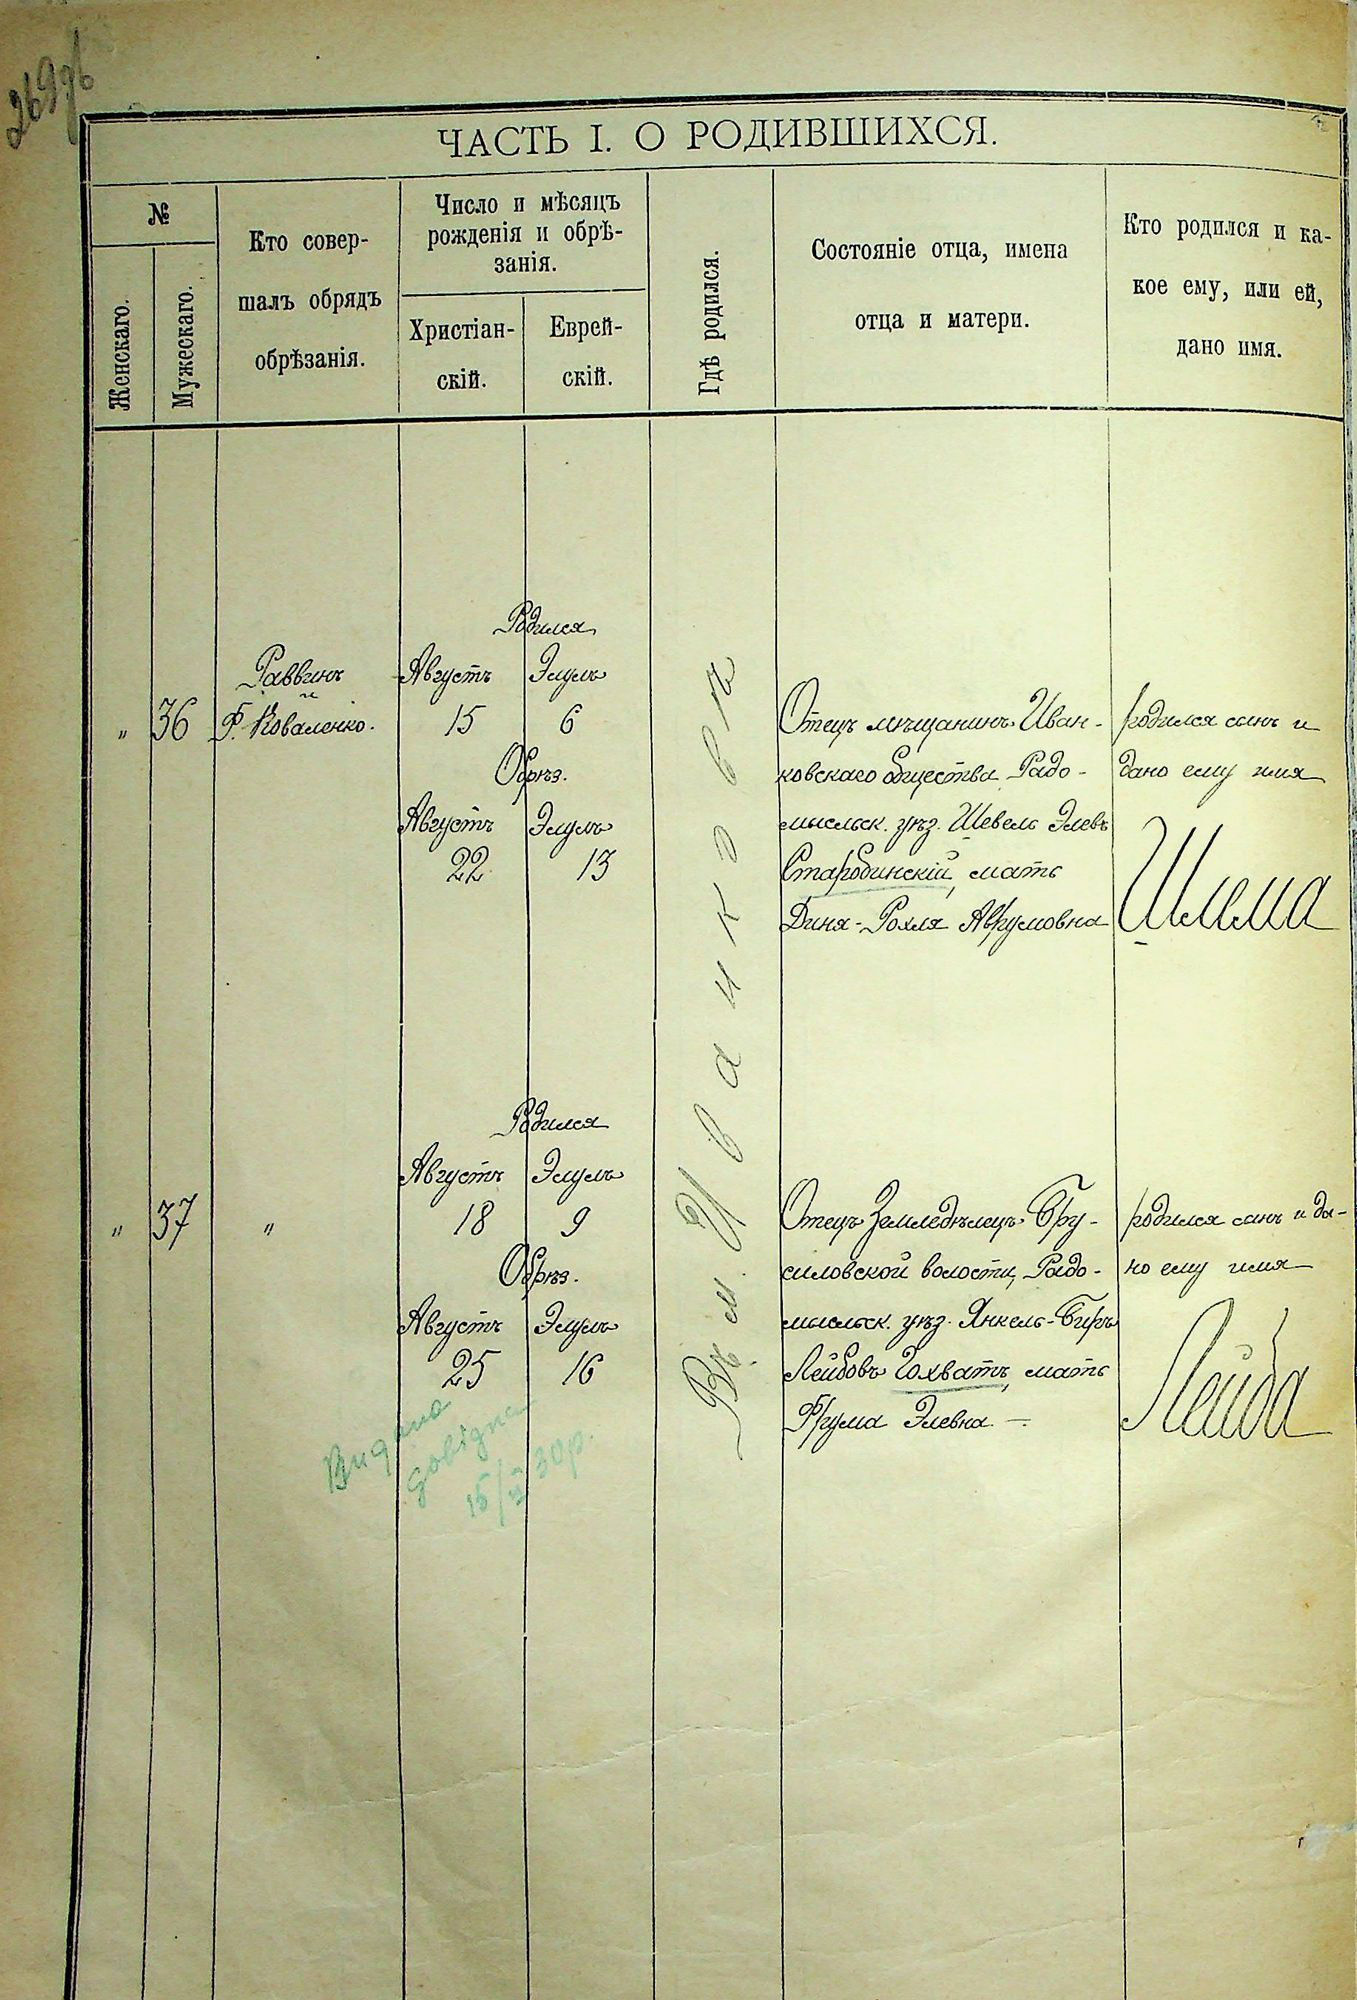 269об
ЧАСТЬ I. О РОДИВШИХСЯ.
№
Женскаго.
Мужескаго.
Кто совер-
шалъ обрядъ
обрѣзанія.
Число и мѣсяцъ
рожденія и обрѣ-
занія.
Христіан-
скій.
Еврей-
скій.
Гдѣ родился.
Состояніе отца, имена
отца и матери.
Кто родился и ка-
кое ему, или ей,
дано имя.
„
36
Раввинъ
Ф. Коваленко.
Родился
Августъ Элулъ
15 6
Обрѣз.
Августъ Элулъ
22 13
Въ м. Иванковѣ
Отецъ мѣщанинъ Иван-
ковскаго общества Радо-
мысльск. уѣз. Шевель Элевъ
Старобинскій, мать
Диня-Рохля Аврумовна
родился сынъ и
дано ему имя
Шлема
„
37
„
Родился
Августъ Элулъ
18 9
Обрѣз.
Августъ Элулъ
25 16
Отецъ Земледѣлецъ Бру-
силовской волости, Радо-
мысльск. уѣз. Янкель-Беръ
Лейбовъ Гохватъ, мать
Фрума Элевна —
родился сынъ и да-
но ему имя
Лейба
Видана
довідка
15/ 30р.